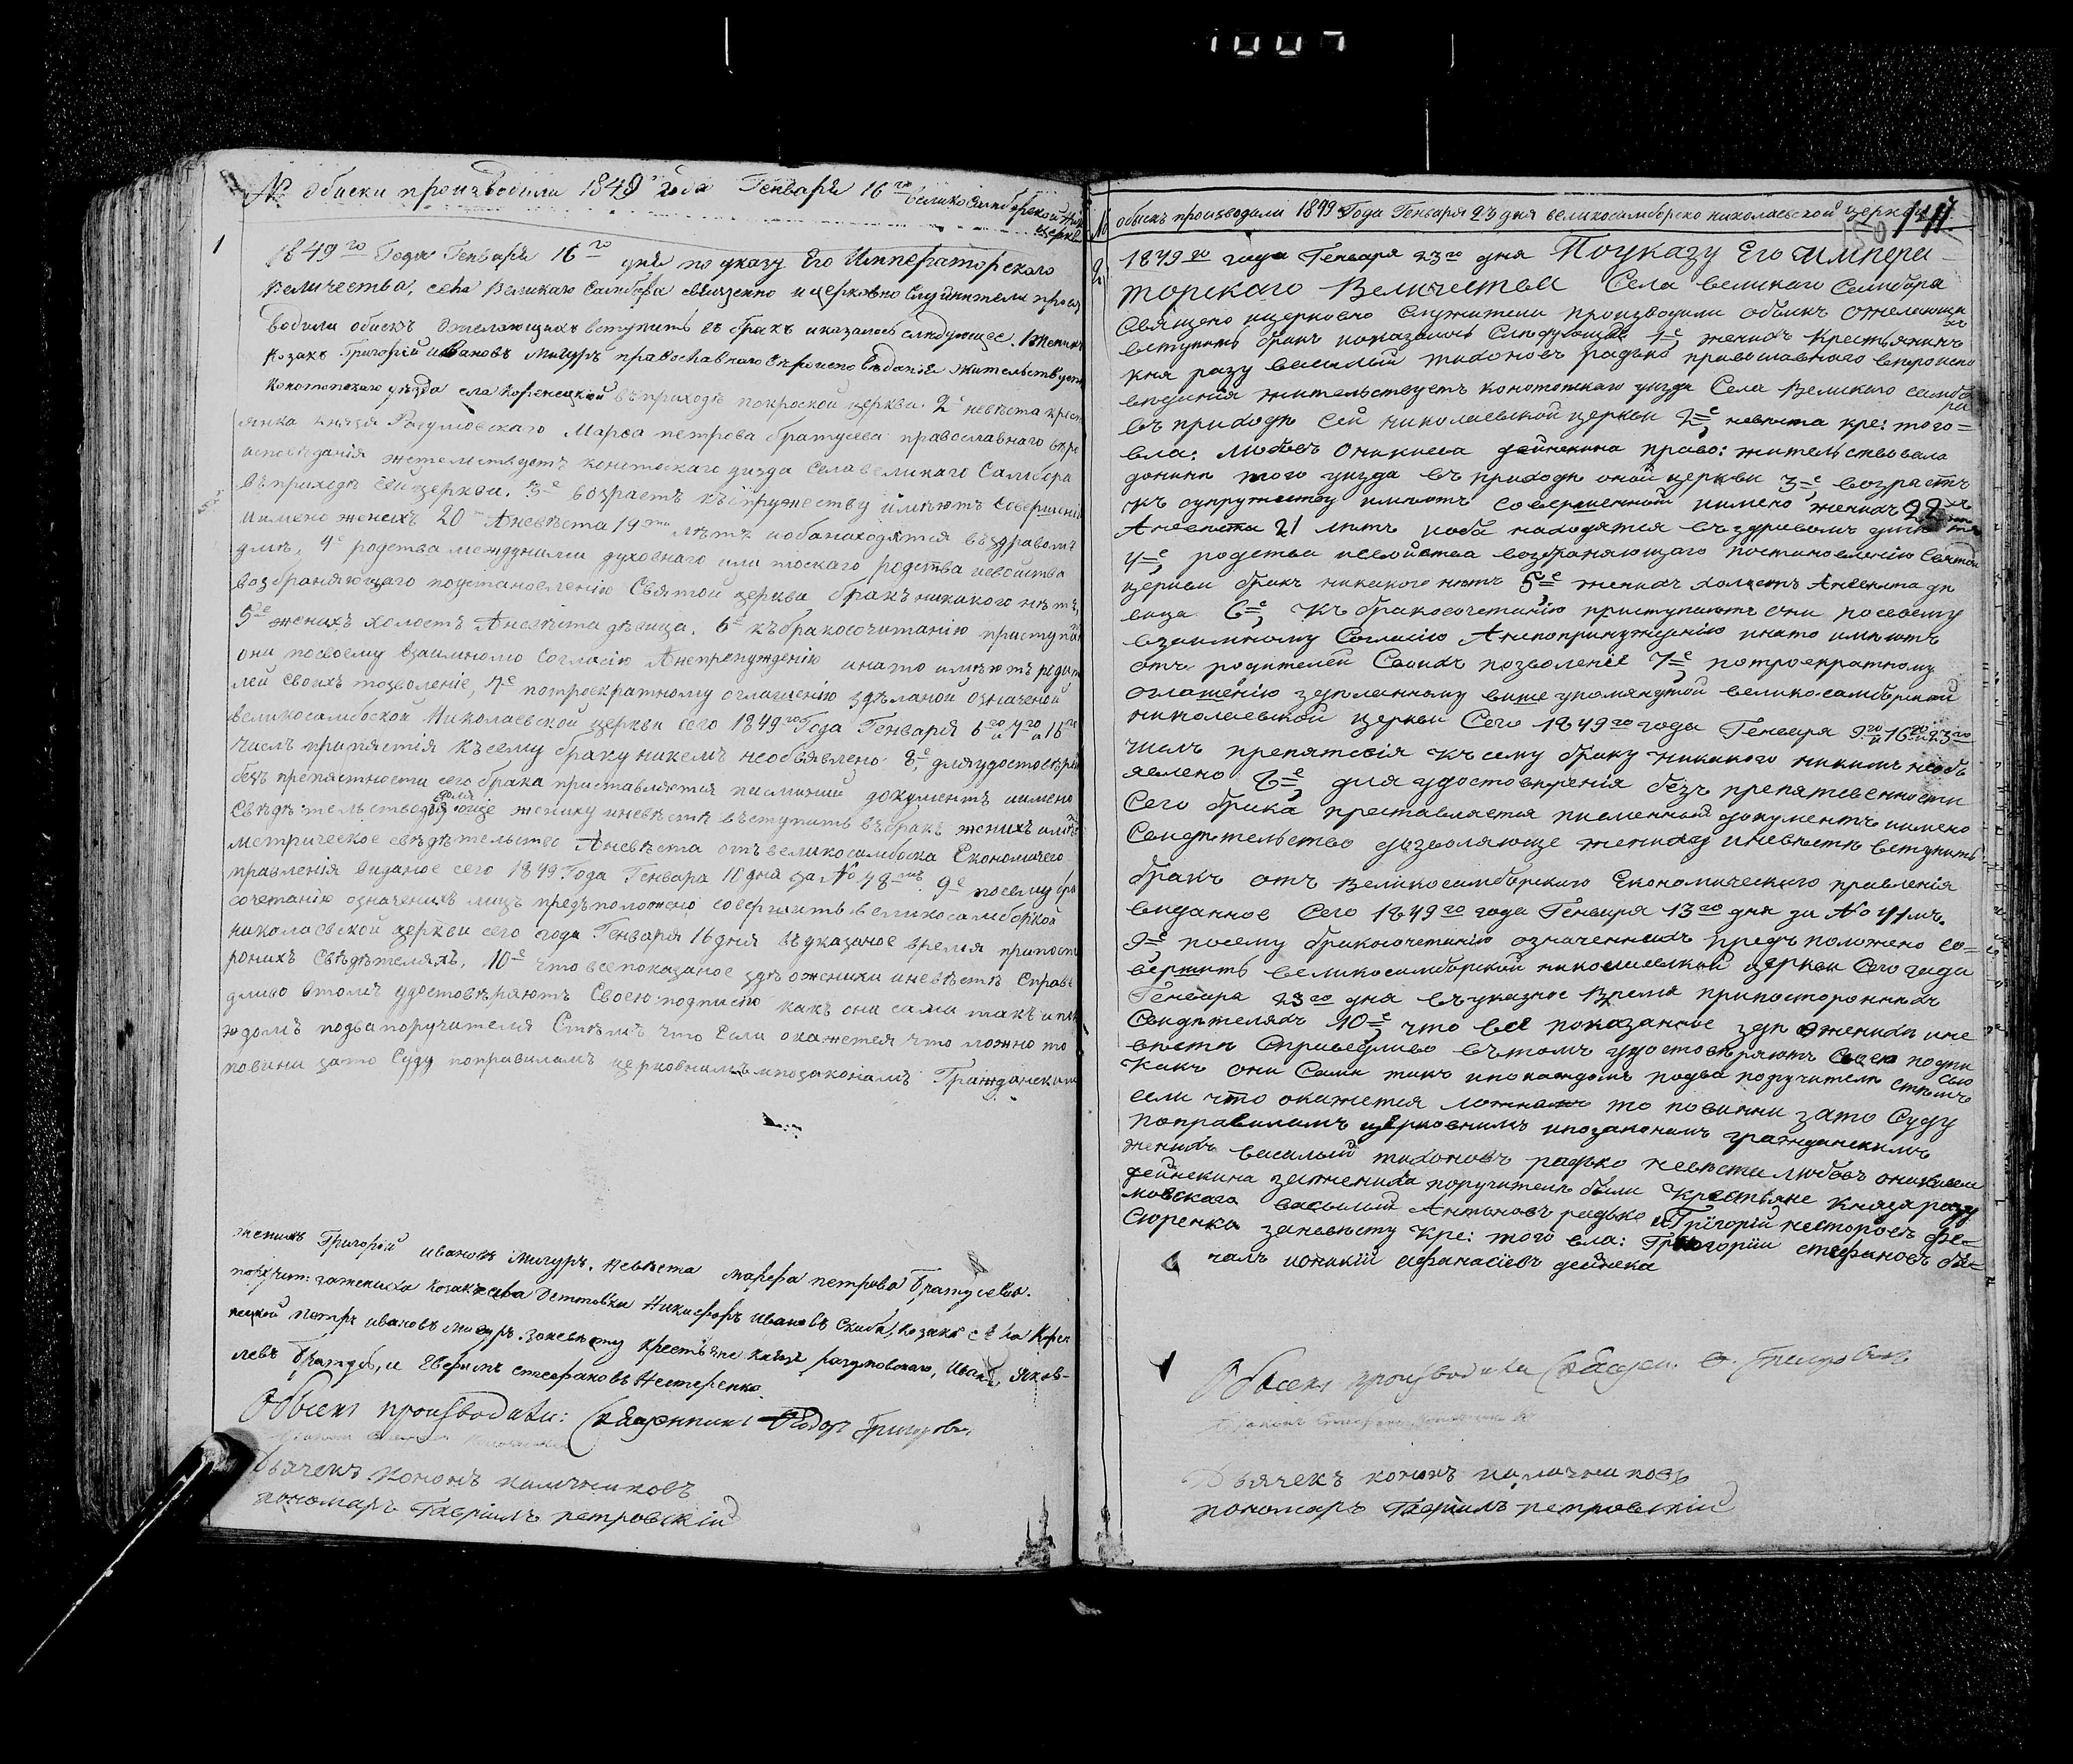 1007
№ обиски производили 1849 года Генваря 16го великосамборской
церкв
1
1849го Года Генваря 16го дня по указу Его Императорскаго
Величества, села Великаго Самбора священно и церковно служители произ
водили обискъ ожелающихъ вступить въ бракъ иказалось слидующее. 1 Женихъ
Козакъ Григорій ивановъ Мигуръ православнаго жительствуетъ
конотопскаго уезда села Коренецкой въприходѣ покроской церкви. 2е невѣста крест
янка князя Разумовскаго Марѳа петрова братусева православнаго вѣро
исповѣданія жительствуетъ уизда Села великаго Самбора
въприходѣ сей церкви. 3е возрастъ къ супружеству имѣютъ совершеній
иимено женихъ 20 Аневѣста 19 лѣтъ иобанаходятся въздравомъ
умѣ, 4е родства междуними духовнаго или плоскаго родства исвойства
возбраняющаго поустановленію Святой церкви бракъ никакого нѣтъ,
5е женихъ холостъ Аневѣста дѣвица. 6е къбракосочитанію приступа
они посвоему взаимному согласію Анепренужденію инато имѣютъ родит
лей своихъ позволеніе, 7е потроекратному оглашенію здѣланой означеной
великосамбоской Николаевской церкви сего 1849го Года Генваря 6го и 7го и 16го
числъ припястія къ сему браку никемъ необъявлено 8е, дляудостовѣрен
безъ препястности сего брака приставляется писминий документъ иимено
Свѣдѣтельство жениху иневѣстѣ въступить въбракъ женихъ имѣе
метрическое свѣдѣтельство Аневѣста отъ великосамбоска Економичего
правленія виданое сего 1849 Года Генвара 10 дня за № 48. 9е посему бра
сочетанію означенихъ лицъ предъположено совершить великосамборкой
николаевской церкви сего года Генваря 16 дня въуказаное время припосто
ронихъ свѣдѣтеляхъ, 10е что всепоказаное здѣ оженихи иневѣстѣ справе
дливо втомъ удостовѣряютъ Своею подписію какъ они сами такъ ипока
ждомъ подва поручителя Стѣмъ что Если окажется что ложно то
повини зато Суду поправиламъ церковнимъ ипозаконамъ Гражданскимъ
женихъ Григорій ивановъ Мигуръ. Невѣста Марѳа петрова Братусева.
поручит: зажениха козакъ Никифоръ ивановъ Скиба, козакъ села Коре
нецкой петръ ивановъ мигуръ. заневѣсту крестьяне князя разумовскаго, Иванъ, Яков-
левъ Братусь, и Ефимъ стефановъ Нестеренко
Обыскъ производили: Священникъ Ѳеодоръ Григорович
Дьячекъ Кононъ
пономаръ Гавриилъ петровскій
№ обискъ производили 1849 Года Генваря 23 дня великосамборско николаевской церкви
2
1849го года Генваря 23го дня Поуказу Его импера-
торскаго Величества Села великаго Самбора
Священо ицерковно служители производили обискъ ожелающи
хъ
вступить бракъ ипоказалось Слидующее 1е, женихъ Крестьянинъ
кня разу василий тихоновъ радько православнаго вероиспо
виданія жительствуетъ конотопскаго уизда Села Великаго самбо
ра
въ приходи сей николаевской церкви 2е, невиста кре: того=
вла: Любовъ Оникиева дейнекина право: жительствовала
донини того уизда въ приходи оной церкви 3е, возрастъ
къ супружеству имиютъ совершенной иимено женихъ 22
Аневиста 21 литъ иоба находятся въздравомъ уми
4е, родства исвойства возбраняющаго постановленію святой
церкви бракъ никакого нитъ 5е женихъ холостъ Аневиста ди
вица 6е, Къ бракосочетанію приступаютъ они посвоему
взаимному Согласію Анепопринужденію инато имиютъ
отъ родителей Своихъ позволеніе 7е, потроекратному
оглашенію здиланному више упомянутой великосамборской
николаевской церкви Сего 1849го года Генваря 9го и 16го и 23го
числъ препятсвія къ сему браку никакого никимъ необъ
явлено 8е, для удостовиренія безъ препятственности
Сего брака преставляется писменный документъ иимено
Свидительство дозволяюще жениху иневисти вступить
бракъ отъ великосамборскаго Економическаго правленія
виданное Сего 1849го года Генваря 13го дня за № 41мъ.
9е посему бракосочетанію означеннихъ предъ положено со=
вершить великосамборской николаевской церкви Сего года
Генвара 23го дня въуказное время припостороннихъ
Свидителяхъ 10е, что всё показанное зди оженихи ине
висти Справедливо въ томъ удостовиряютъ Своею подпи
сью
Какъ они Сами такъ ипокаждомъ подва поручители стимъ
если что окажется то повинни зато Суду
поправиламъ церковнимъ ипозаконамъ гражданскимъ
женихъ василий тихоновъ радько невиста любовъ оникиева
дейнекина зажениха поручители были Крестьяне Князя разу
мовскаго василий Антоновъ радько и Григорій несторовъ фе=
сюренко заневисту Кре: того вла: Григорій стефановъ
чалъ ионикій афанасіевъ дейнека
Обыскъ производили Священ. Ѳ. Григорович
Дьячекъ кононъ
пономаръ Гавриилъ петровскій